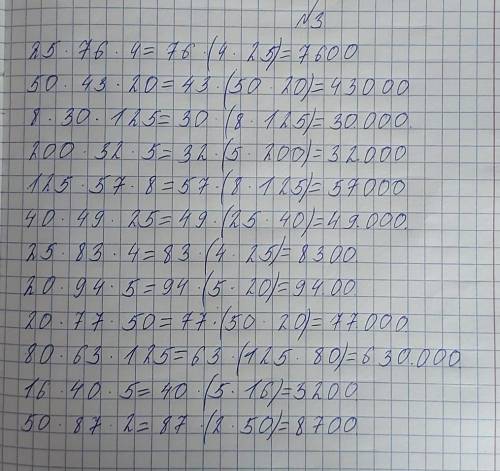 №3
25 · 76 · 4 = 76 · (4 · 25) = 7600
50 · 43 · 20 = 43 · (50 · 20) = 43000
8 · 30 · 125 = 30 · (8 · 125) = 30.000.
200 · 32 · 5 = 32 · (5 · 200) = 32.000
125 · 57 · 8 = 57 · (8 · 125) = 57000
40 · 49 · 25 = 49 · (25 · 40) = 49.000.
25 · 83 · 4 = 83 · (4 · 25) = 8300
20 · 94 · 5 = 94 · (5 · 20) = 9400
20 · 77 · 50 = 77 · (50 · 20) = 77.000.
80 · 63 · 125 = 63 · (125 · 80) = 630.000.
16 · 40 · 5 = 40 · (5 · 16) = 3200
50 · 87 · 2 = 87 · (2 · 50) = 8700